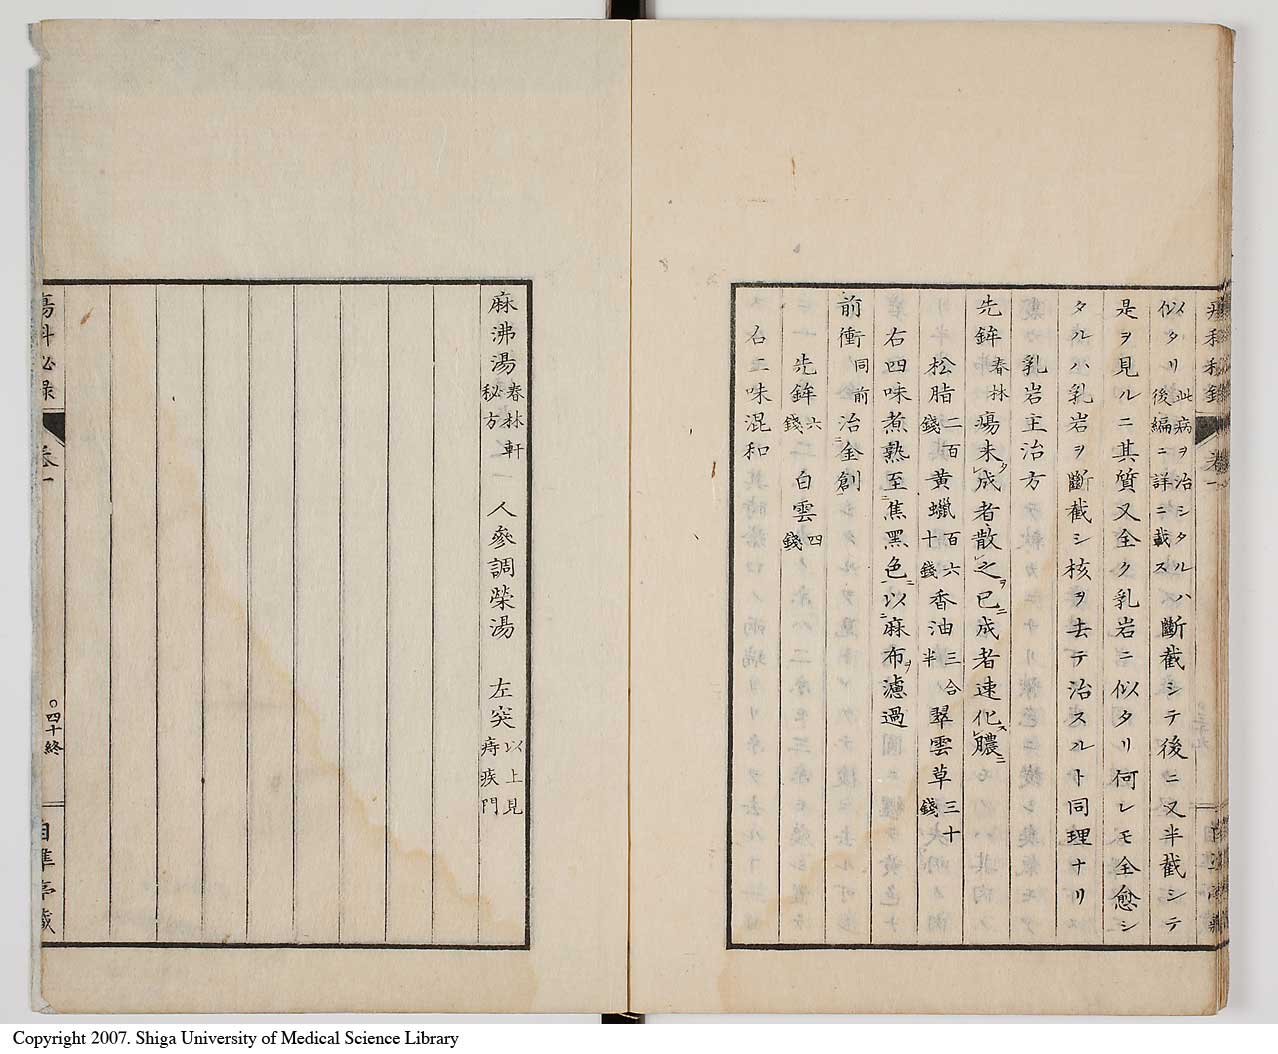 似タリ 此病ヲ治シタル 後編ニ詳ニ載ス ハ斷截シテ後ニ又半截シテ
是ヲ見ルニ其質又全ク乳岩ニ似タリ何レモ全愈シ
タルハ乳岩ヲ斷截シ核ヲ去テ治スルト同理ナリ
乳岩主治方
先鉾 春林 瘍未タ成者散之ヲ已ニ成者速化ス膿ニ
松脂 二百錢 黃蠟 百六十錢 香油 三合半 翠雲草 三十錢
右四味煮熟至ニ焦黑色ニ以ニ麻布ヲ濾過
前衝 同前 治ニ金創
先鉾 六錢 白雲 四錢
右二味混和
麻沸湯 春林軒秘方 人參調榮湯 左突 以上見痔疾門
瘍科秘錄
卷一
四十終
自準亭藏
Copyright 2007. Shiga University of Medical Science Library